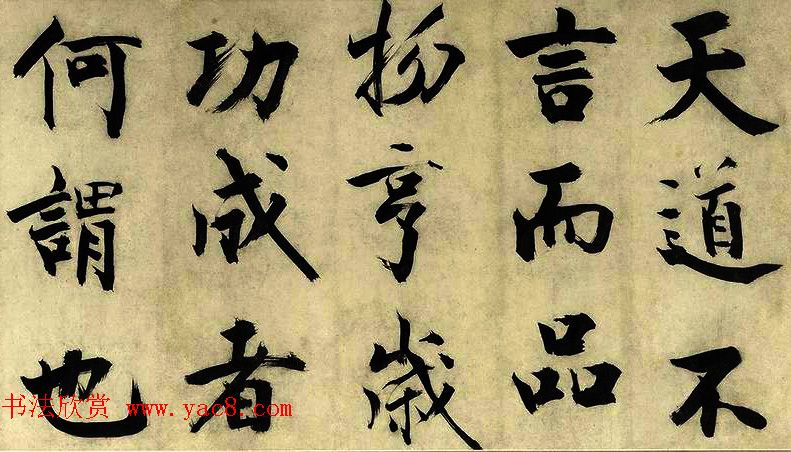 天道不
言而品
物亨歲
功成者
何謂也
书法欣赏 www.yac8.com